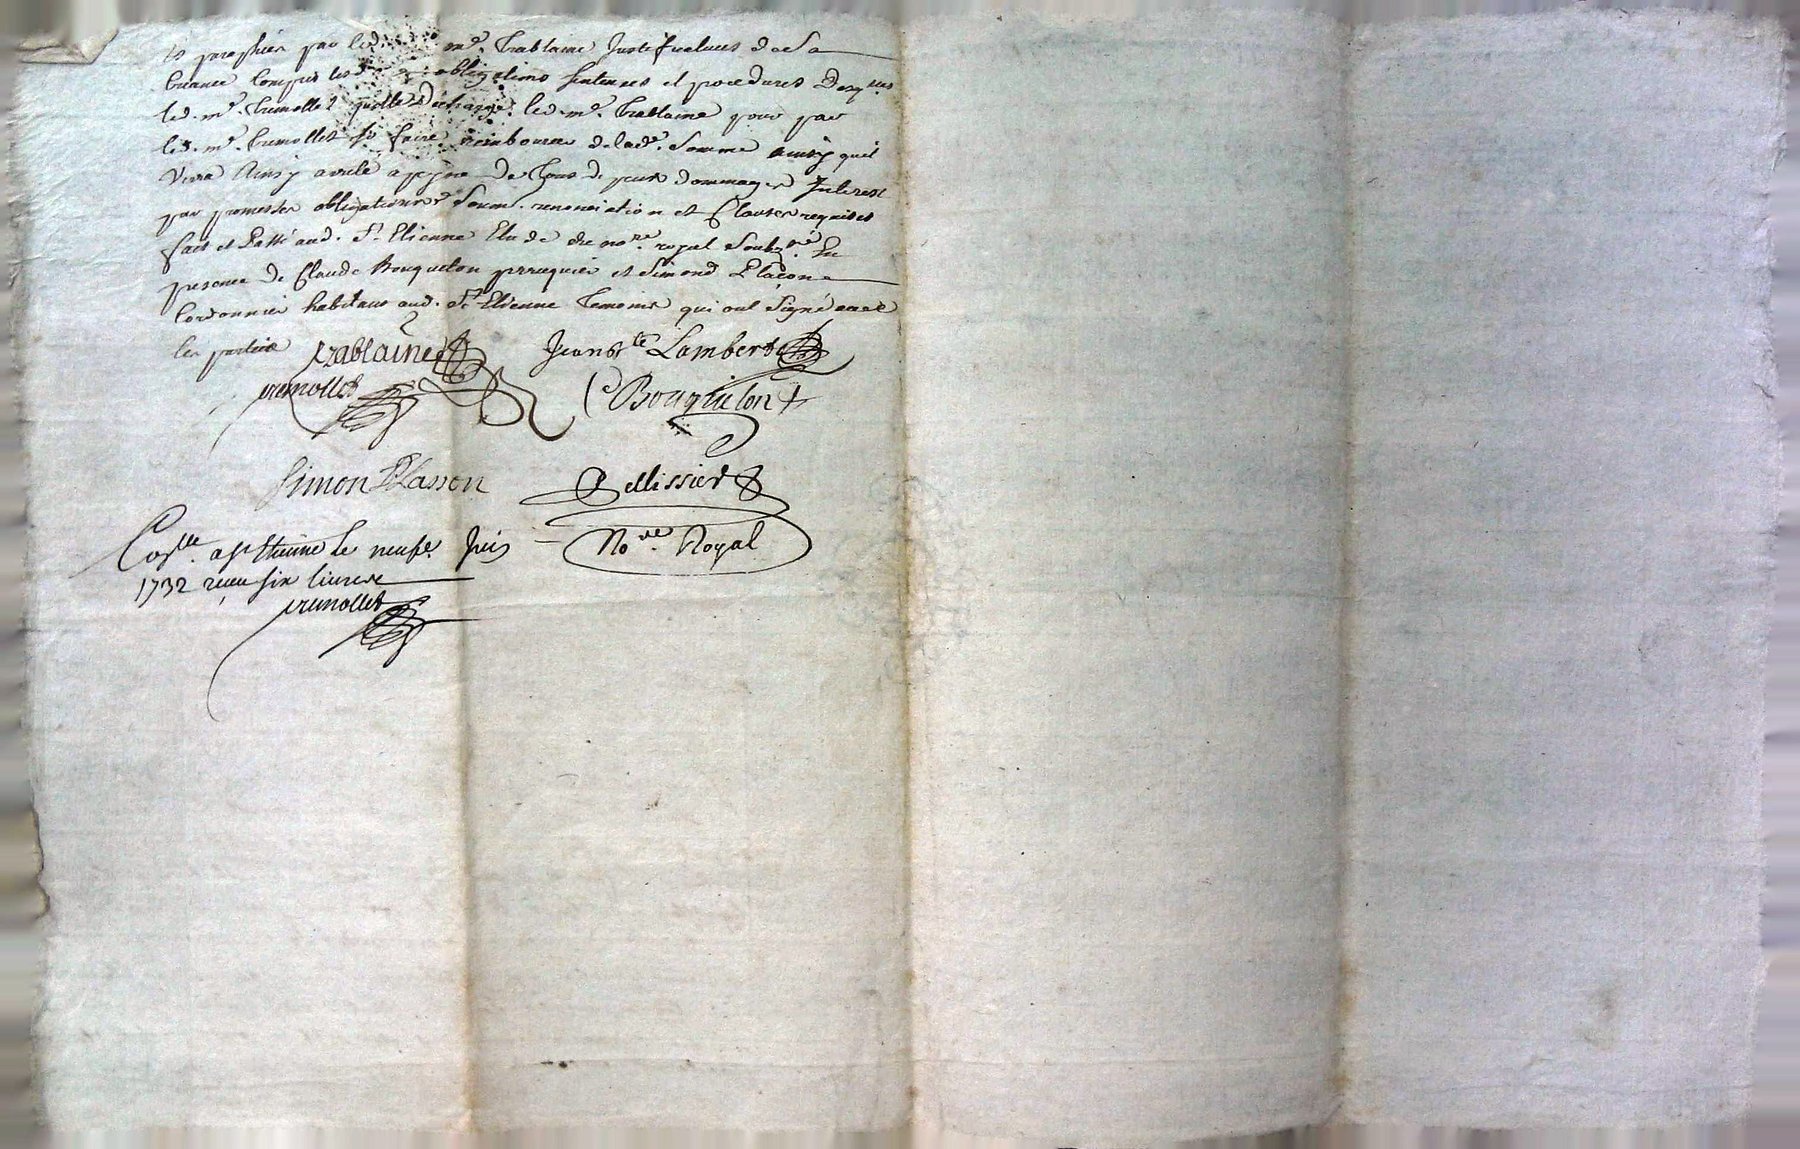 et paraphées par led. me. Trablaine Justificatives de sa
creance Compris les obligations sentences et procedures desqlles
led. me. Tremollet quitte et décharge led. me. Trablaine pour par
led. me. Tremollet se faire rembourcer de lade. Somme ainsy quil
verra Ainsy a vecle a peyne de Tous depens dommages Interest
par promesses obligations Soum. renonciation et Clauses requises
fait et Passé aud. St. Etienne Etude du nore. royal Soubzné. En
presence de Claude Bouqueton perruquier et Simond Plaçon
Cordonnier habitans aud. St. Etienne Temoins qui ont Signé avec
les parties
Trablaine Jean bte Lambert
Tremollet C Bouqueton
Simon Plasson Pellissier
Nore. Royal
Conlle. a St Etienne le neufe. Juin
1732 receu six livres
Tremollet